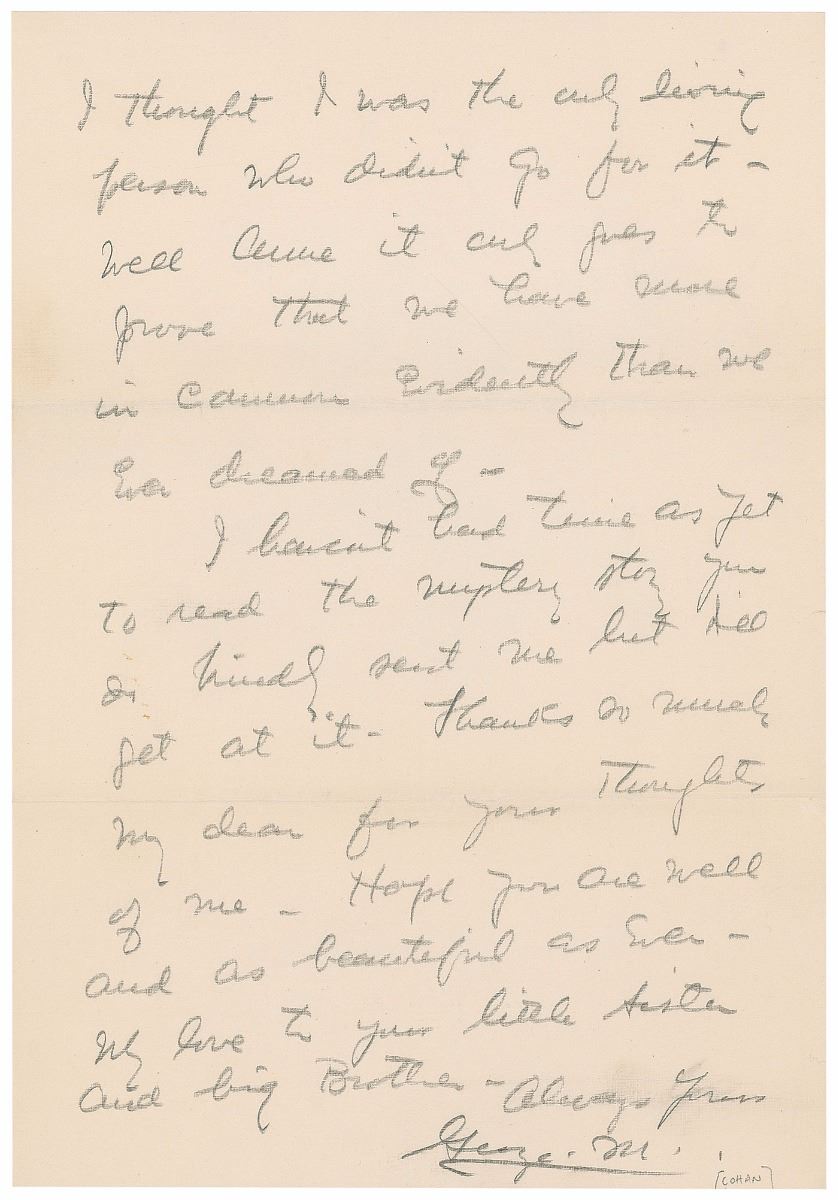 I thought I was the only living
person who didn't go for it -
Well Anne it only goes to
prove that we have more
in common Evidently than we
Ever dreamed of -
I haven't had time as yet
to read the mystery story you
so kindly sent me but I'll
get at it - Thanks so much
My dear for your thoughts
of me - Hope you are well
and as beautiful as Ever -
My love to your little sister
and big Brother - Always Yours
George. M.
[COHAN]